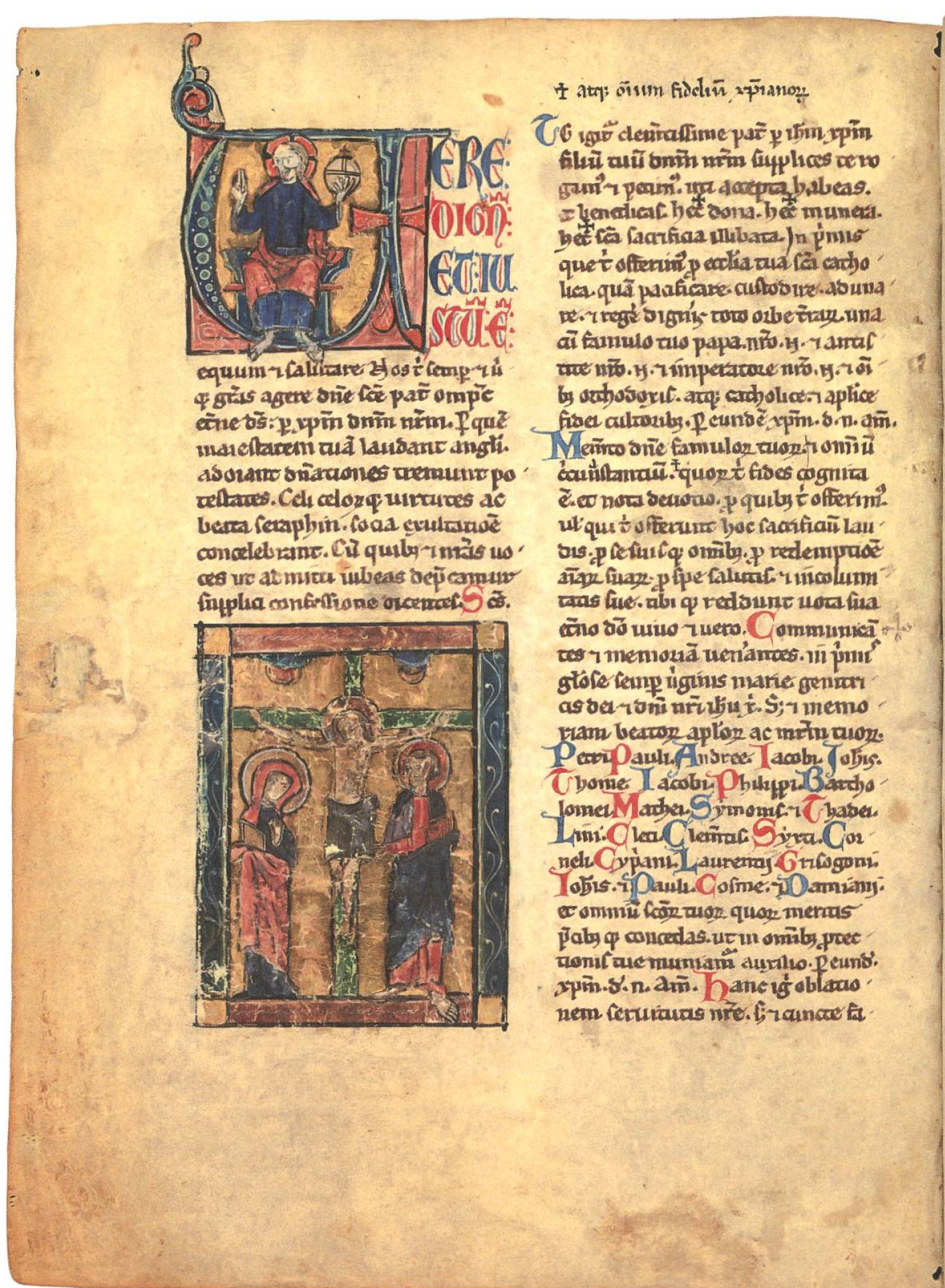 UERE·
DIGN̄:
ET·IU
STŪ·Ē:
equum ⁊ salutare Nos t̄ semp̄ ⁊ ū
q; grās agere dn̄e sc̄e pat̄ omp̄c
et̄ne ds̄: p̱ xp̄m dn̄m nr̄m. P̱ quē
maiestatem tuā laudant angl̄i·
adorant dn̄ationes tremunt po·
testates. Celi celorq; uirtutes ac
beata seraphin· socia exultatiōe
concelebrant. Cū quib; ⁊ nr̄as uo·
ces ut admitti iubeas dep̄camur
supplici confessione dicentes. Sc̄s.
✝ atq; oīum fideliū xp̄ianoꝝ
TE igit̄ clem̄tissime pat̄ p̱ ih̄m xp̄m
filiū tuū dn̄m nr̄m supplices te ro
gam᷒ ⁊ petim᷒. uti accepta habeas.
⁊ benedicas. hec̄ dona· hec̄ munera·
hec̄ sc̄a sacrificia illibata. In p̄mis
que t̄ offerim᷒ p̱ ecc̄lia tua sc̄a catho
lica· quā pacificare· custodire· aduna
re· ⁊ reg̓e dignis᷒ toto orbe t̄raꝝ· una
cū famulo tuo papa· nr̄o· N· ⁊ antis
tite nr̄o· N· ⁊ imperatore nr̄o· N· ⁊ oī
b; orthodoxis· atq; catholice· ⁊ ap̄lice
fidei cultorib;. P̱ eundē xp̄m· d· n· am̄.
Mem̄to dn̄e famuloꝝ tuoꝝ ⁊ omniū
c̄cūstantiū· quoꝝ t̄ fides cognita
ē· et nota deuotio· p̱ quib; t̄ offerim᷒·
ul̄ qui t̄ offerunt hoc sacrificiū lau·
dis· p̱ se suisq; omib;· p̱ redemptiōe
aīaꝝ suaꝝ· p̱ spe salutis· ⁊ incolumi
tatis sue· tibi q; reddunt uota sua
et̄no dō uiuo ⁊ uero. Communicā
tes ⁊ memoriā uen̄antes· in p̄mis᷒
glōse semp̱ uīginis marie· genitri
cis dei ⁊ dn̄i nr̄i ih̄u x̄. S; ⁊ memo
riam beatoꝝ ap̄loꝝ ac mr̄m tuoꝝ·
Petri· Pauli· Andree· Iacobi· Ioh̄is·
Thome· Iacobi· Philippi· Bartho·
lomei· Mathei· Symonis· ⁊ Thadei·
Lini· Cleti· Clem̄tis· Syxti· Cor·
neli· Cyp̄ani· Laurentij· Grisogoni·
Ioh̄is· ⁊ Pauli· Cosme· ⁊ Damiani·
et omniū sc̄oꝝ tuoꝝ· quoꝝ meritis
p̄cib; q; concedas· ut in omib; p̱tec·
tionis tue muniam᷒ auxilio· P̱ eund̓·
xp̄m· d̓· n· Am̄. Hanc ig̓ oblatio·
nem seruitutis nr̄e· s; ⁊ cuncte fa·